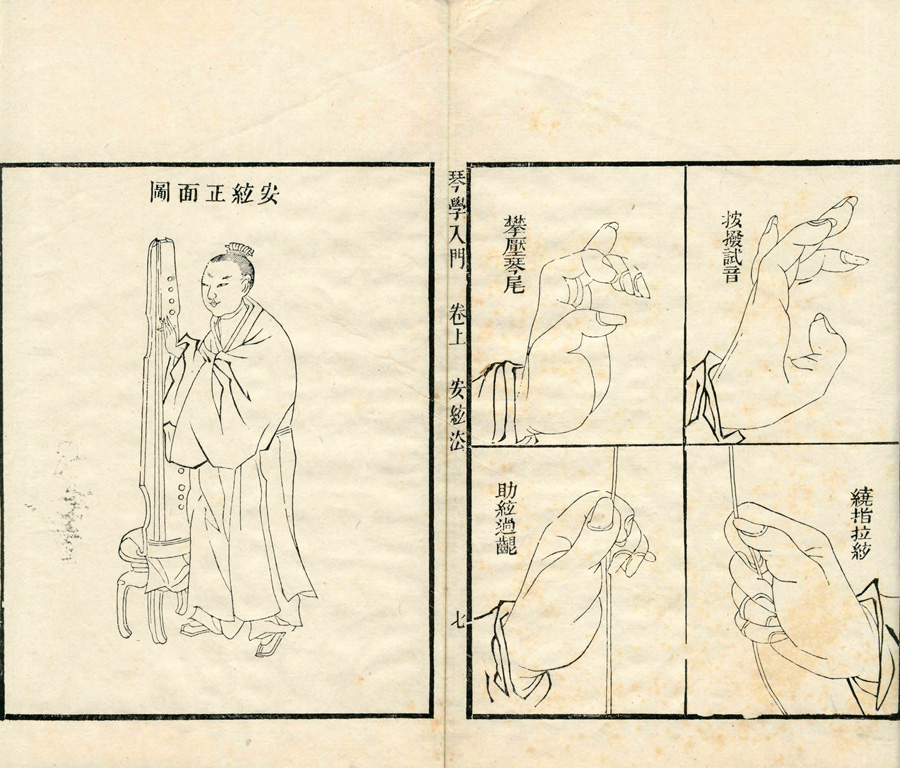 按撥試音
攀壓琴尾
繞指拉絃
助絃過齦
琴學入門 卷上 安絃法 七
安絃正面圖